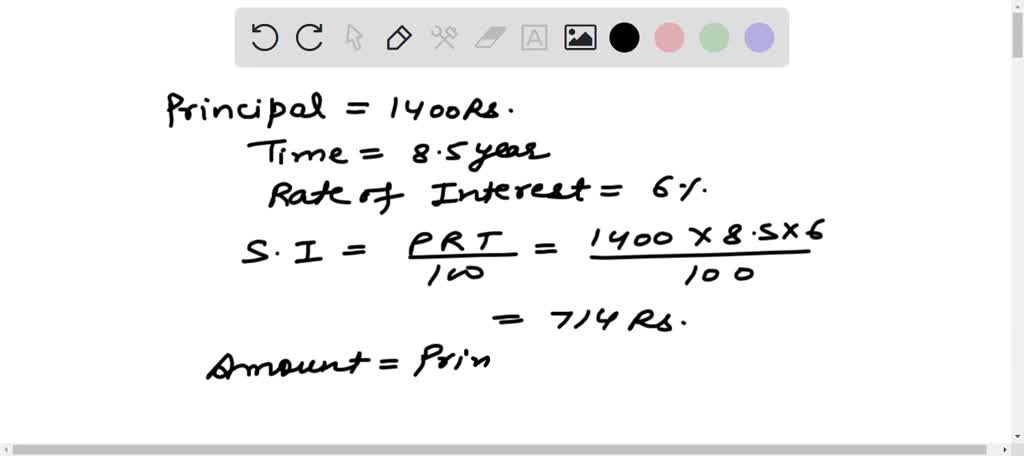 A
Principal = 1400 Rs.
Time = 8.5 year
Rate of Interest = 6%.
S.I = PRT/100 = 1400 × 8.5 × 6/100
= 714 Rs.
Amount = Prin